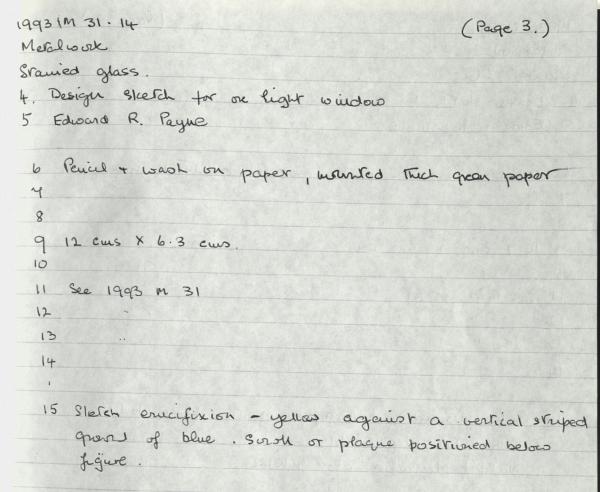 1993 M 31.14 (Page 3.)
Metalwork
Stained glass.
4. Design sketch for one light window
5 Edward R. Payne
6 Pencil + wash on paper, mounted thick green paper
7
8
9 12 cms x 6.3 cms.
10
11 See 1993 M 31
12 "
13 "
14
15 Sketch crucifixion - yellow against a vertical striped
ground of blue. Scroll or plaque positioned below
figure.